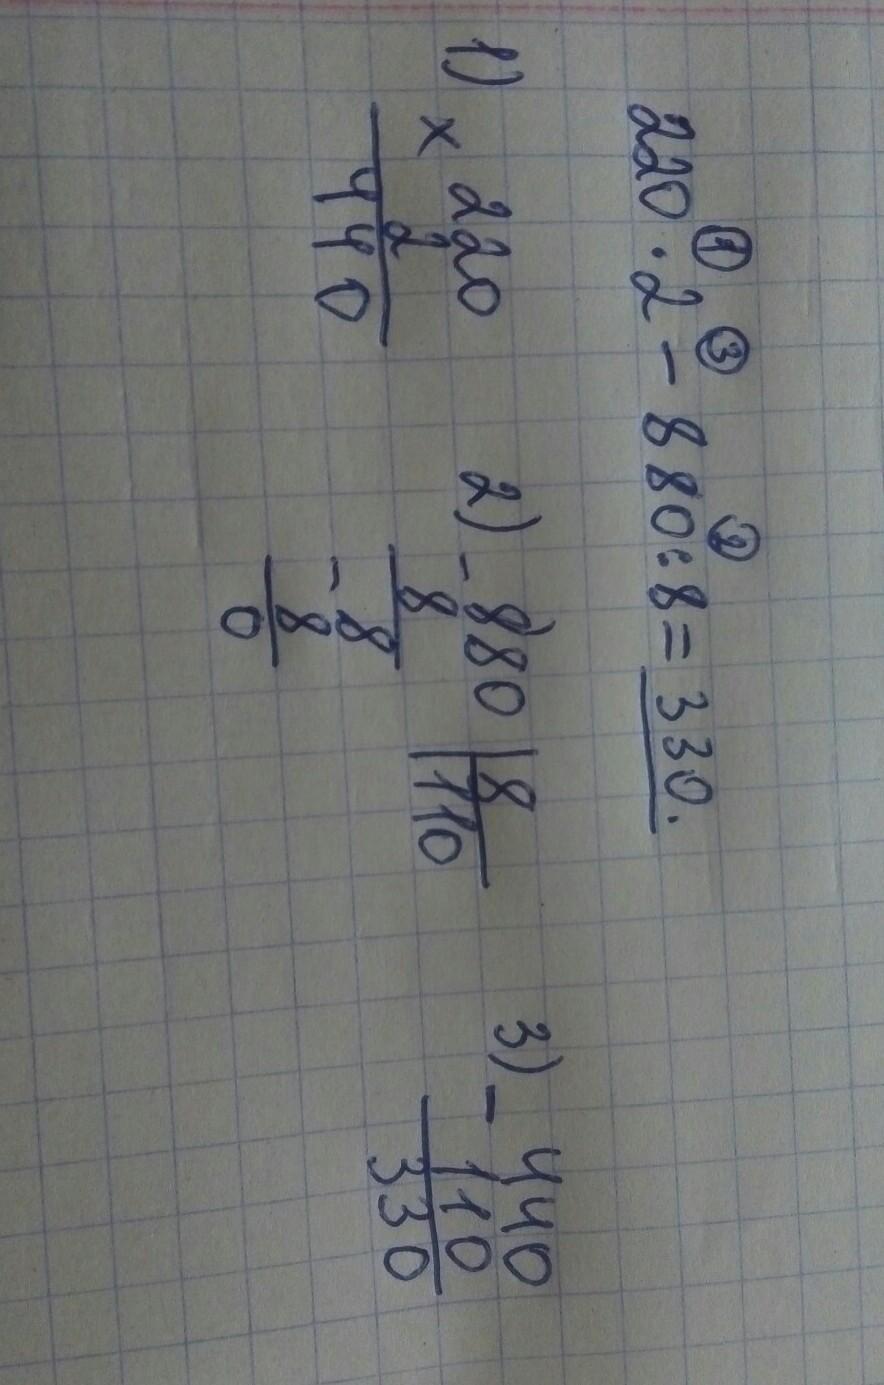 ① ③ ②
220 · 2 - 880 : 8 = 330.
1) × 220
2
440
2) - 880 | 8
8 | 110
- 8
8
0
3) - 440
110
330